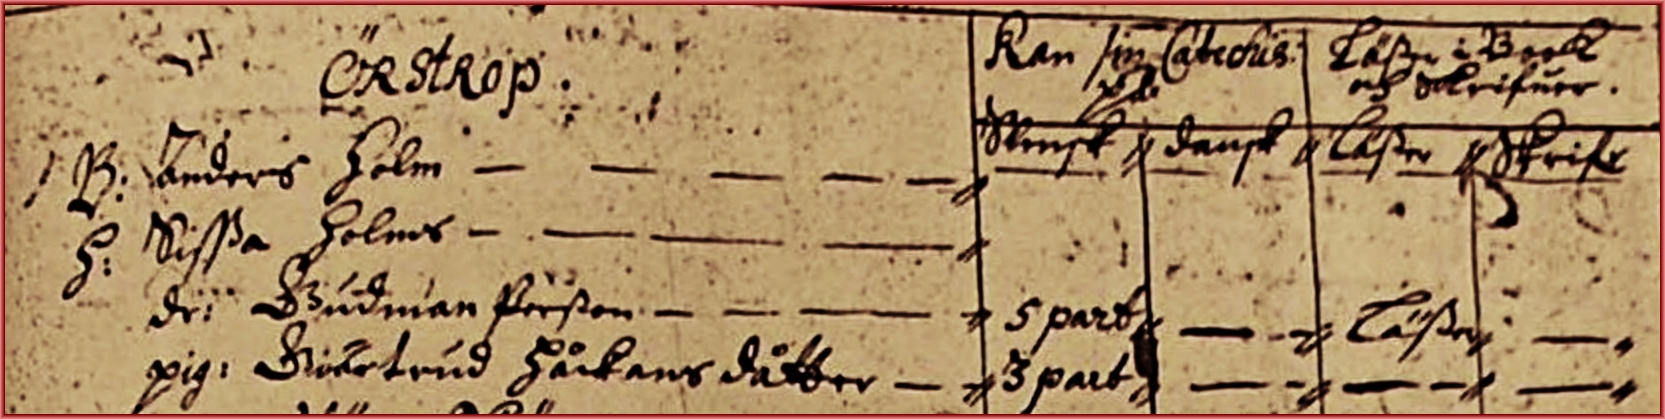 Örstrop.
Kan sin Catechis:
Läser i Book
och Skrifuer.
Swensk dansk Läser Skrifr
1 B: Anders Holm
H: Sissa Holms
dr: Gudman Person 5 part Läser
pig: Giärtrud Håkans dåtter 3 part